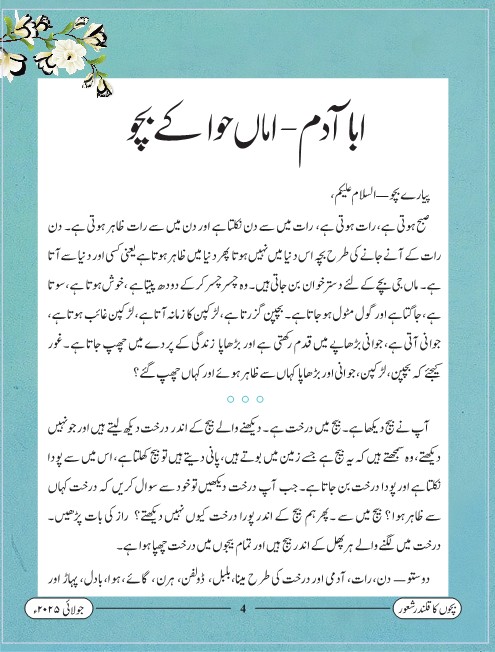 ابا آدم – اماں حوا کے بچو
پیارے بچو — السلام علیکم،
صبح ہوتی ہے، رات ہوتی ہے، رات میں سے دن نکلتا ہے اور دن میں سے رات ظاہر ہوتی ہے۔ دن
رات کے آنے جانے کی طرح بچہ اس دنیا میں نہیں ہوتا پھر دنیا میں ظاہر ہوتا ہے یعنی کسی اور دنیا سے آتا
ہے۔ ماں جی بچے کے لئے دسترخوان بن جاتی ہیں۔ وہ چسر چسر کر کے دودھ پیتا ہے، خوش ہوتا ہے، سوتا
ہے، جاگتا ہے اور گول مٹول ہو جاتا ہے۔ بچپن گزرتا ہے، لڑکپن کا زمانہ آتا ہے، لڑکپن غائب ہوتا ہے،
جوانی آتی ہے، جوانی بڑھاپے میں قدم رکھتی ہے اور بڑھاپا زندگی کے پردے میں چھپ جاتا ہے۔ غور
کیجئے کہ بچپن، لڑکپن، جوانی اور بڑھاپا کہاں سے ظاہر ہوئے اور کہاں چھپ گئے؟
آپ نے بیج دیکھا ہے۔ بیج میں درخت ہے۔ دیکھنے والے بیج کے اندر درخت دیکھ لیتے ہیں اور جو نہیں
دیکھتے، وہ سمجھتے ہیں کہ یہ بیج ہے جسے زمین میں بوتے ہیں، پانی دیتے ہیں تو بیج کھلتا ہے، اس میں سے پودا
نکلتا ہے اور پودا درخت بن جاتا ہے۔ جب آپ درخت دیکھیں تو خود سے سوال کریں کہ درخت کہاں
سے ظاہر ہوا؟ بیج میں سے۔ پھر ہم بیج کے اندر پورا درخت کیوں نہیں دیکھتے؟ راز کی بات پڑھیں۔
درخت میں لگنے والے ہر پھل کے اندر بیج ہیں اور تمام بیجوں میں درخت چھپا ہوا ہے۔
دوستو — دن، رات، آدمی اور درخت کی طرح مینا، بلبل، ڈولفن، ہرن، گائے، ہوا، بادل، پہاڑ اور
بچوں کا قلندر شعور
4
جولائی ۲۰۲۵ء